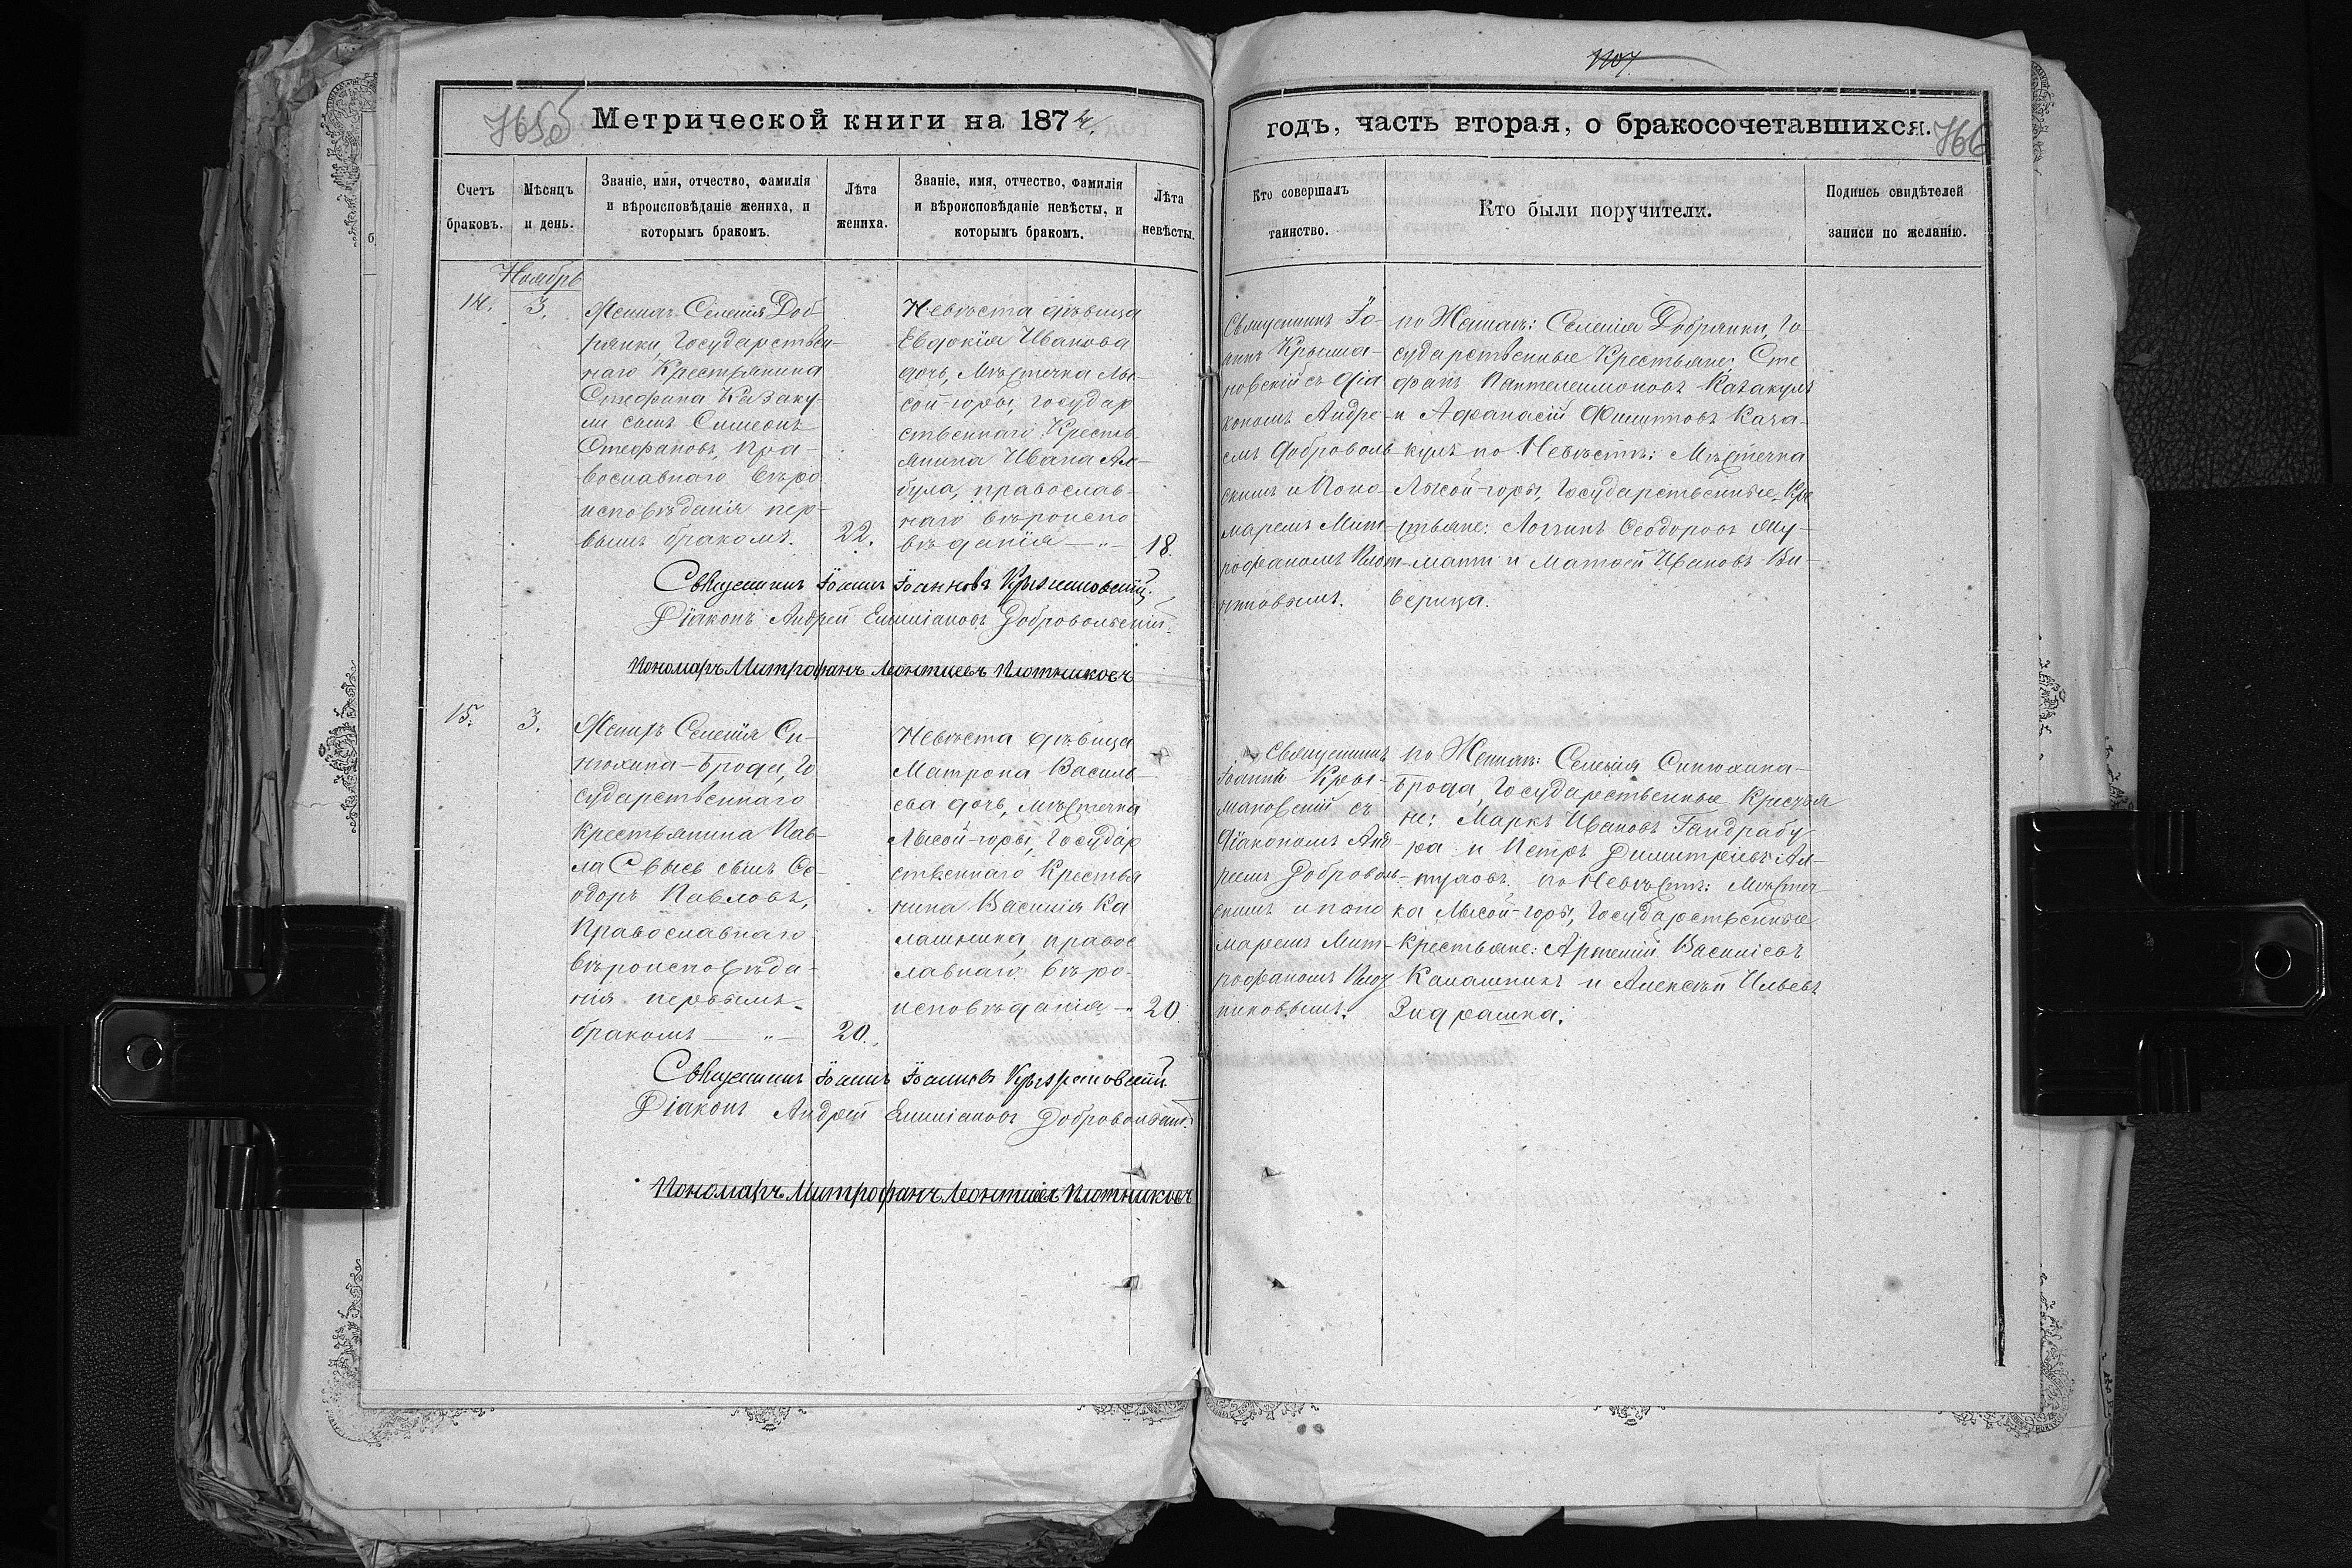 1107
765об
Метрической книги на 1874.
годъ, часть вторая, о бракосочетавшихся.
766
Счетъ браковъ.
Мѣсяцъ и день.
Званіе, имя, отчество, фамилія
и вѣроисповѣданіе жениха, и
которымъ бракомъ.
Лѣта
жениха.
Званіе, имя, отчество, фамилія
и вѣроисповѣданіе невѣсты, и
которымъ бракомъ.
Лѣта
невѣсты.
Кто совершалъ
таинство.
Кто были поручители.
Подпись свидѣтелей
записи по желанію.
Ноябрь
14. 3.
Женихъ Селенія Доб
рянки, Государствен-
наго Крестьянина
Стефана Казаку-
ла сынъ Симеонъ
Стефановъ, пра-
вославнаго вѣро
исповѣданія пер-
вымъ бракомъ.
22.
Невѣста дѣвица
Евдокія Иванова
дочь, Мѣстечка Лы-
сой-горы, государ
ственнаго Кресть-
янина Ивана
була, православ-
наго вѣроиспо-
вѣданія — „ —
18.
Священникъ Іо-
аннъ Крыжа-
новскій съ Діа
кономъ Андре-
емъ Доброволь
скимъ и Поно-
маремъ Мит-
рофаномъ Плот-
никовымъ.
по Женихѣ: Селенія Добрянки, Го-
сударственные Крестьяне: Сте
фанъ Пантелеимоновъ Казакулъ
и Афанасій Филиповъ Каза-
кулъ по Невѣстѣ: Мѣстечка
Лысой-горы, Государственные Кре
стьяне: Логгинъ Ѳеодоровъ
и Матѳей Ивановъ Ви-
верица.
Священникъ Іоаннъ Іоанновъ Крыжановскій.
Діаконъ Андрей Емиліановъ Добровольскій.
Пономарь Митрофанъ Леонтиевъ Плотниковъ
15. 3.
Женихъ Селенія Си-
нюхина-Брода, Го
сударственнаго
Крестьянина Пав-
ла сынъ Ѳе-
одоръ Павловъ,
Православнаго
вѣроисповѣда-
нія первымъ
бракомъ — „ —
20.
Невѣста дѣвица
Матрона Василь-
ева дочь, мѣстечка
Лысой-горы, Государ
ственнаго Крестья
нина Василія Ка
лашника, правос
лавнаго вѣро-
исповѣданія — „
20.
Священникъ
Іоаннъ Кры-
жановскій съ
Діакономъ Анд-
реемъ Доброволь-
скимъ и поно
маремъ Мит-
рофаномъ Плот
никовымъ.
по Женихѣ: Селенія Синюхина-
Брода, Государственные Крестья
не: Маркъ Ивановъ Гандрабу
ра и Петръ Димитріевъ Ал-
туховъ. по Невѣстѣ: Мѣстеч
ка Лысой-горы, Государственные
Крестьяне: Артемій Василіевъ
Калашникъ и Алексѣй Ильевъ
Зидрашка.
Священникъ Іоаннъ Іоанновъ Крыжановскій.
Діаконъ Андрей Емиліановъ Добровольскій.
Пономарь Митрофанъ Леонтиевъ Плотниковъ